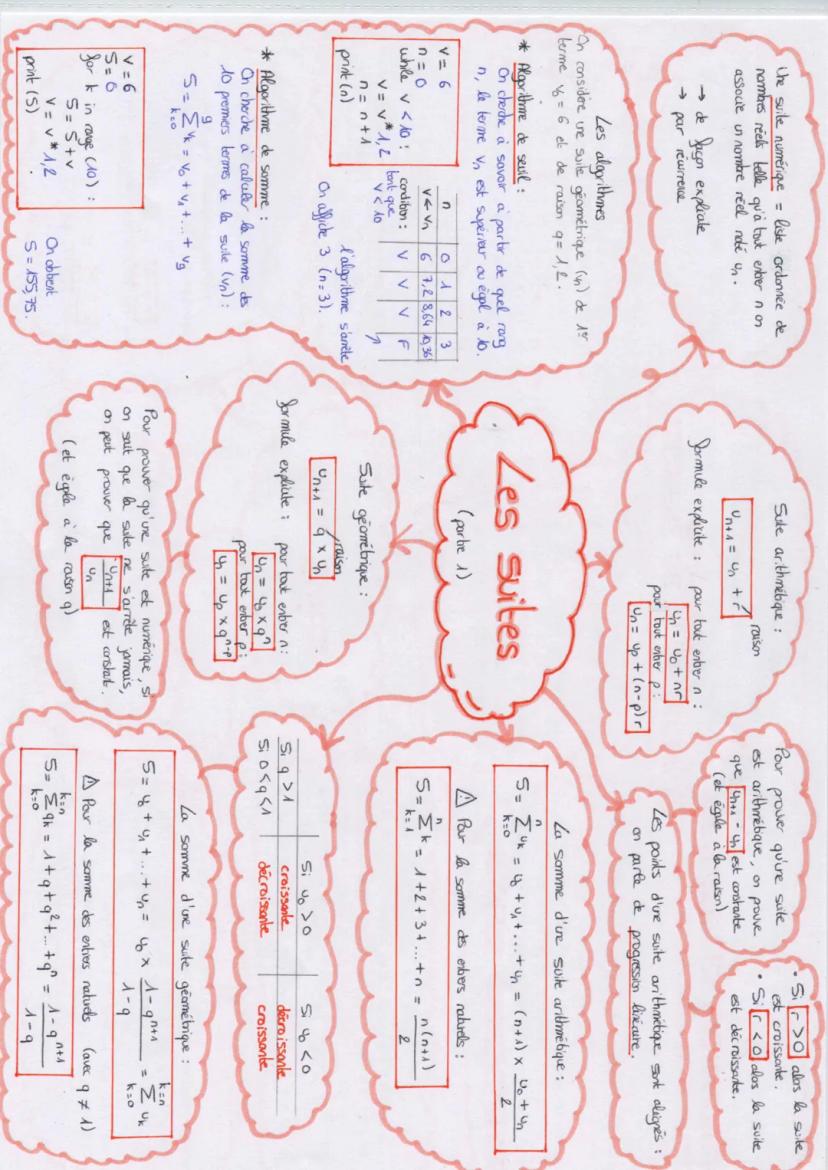 Les suites
(partie 1)
Une suite numérique = liste ordonnée de
nombres réels telle qu'à tout entier n on
associe un nombre réel noté un.
→ de façon explicite
→ par récurrence
Suite arithmétique :
un+1 = un + r
raison
formule explicite :
pour tout entier n :
un = u0 + nr
pour tout entier p :
un = up + (n-p)r
Pour prouver qu'une suite
est arithmétique, on prouve
que un+1 - un est constante
(et égale à la raison)
• Si r > 0 alors la suite
est croissante.
• Si r < 0 alors la suite
est décroissante.
Les points d'une suite arithmétique sont alignés :
on parle de progression linéaire.
La somme d'une suite arithmétique :
S = n∑k=0 uk = u0 + u1 + ... + un = (n+1) × (u0 + un)/2
⚠ Pour la somme des entiers naturels :
S = n∑k=1 k = 1+2+3+...+n = n(n+1)/2
Suite géométrique :
un+1 = q × un
raison
formule explicite :
pour tout entier n :
un = u0 × q^n
pour tout entier p :
un = up × q^n-p
Pour prouver qu'une suite est numérique, si
on sait que la suite ne s'arrête jamais,
on peut prouver que un+1/un est constant.
(et égale à la raison q)
Si u0 > 0 Si u0 < 0
Si q > 1 croissante décroissante
Si 0 < q < 1 décroissante croissante
La somme d'une suite géométrique :
S = u0 + u1 + ... + un = u0 × (1 - q^n+1)/(1 - q) = k=n∑k=0 uk
⚠ Pour la somme des entiers naturels (avec q ≠ 1)
S = k=n∑k=0 qk = 1 + q + q² + ... + q^n = (1 - q^n+1)/(1 - q)
Les algorithmes
On considère une suite géométrique (vn) de 1er
terme v0 = 6 et de raison q = 1,2.
* Algorithme de seuil :
On cherche à savoir à partir de quel rang
n, le terme vn est supérieur ou égal à 10.
v = 6
n = 0
while v < 10 :
v = v * 1,2
n = n + 1
print (n)
n 0 1 2 3
v ← vn 6 7,2 8,64 10,36
condition : V V V F
tant que
v < 10
l'algorithme s'arrête
On affiche 3 (n = 3).
* Algorithme de somme :
On cherche à calculer la somme des
10 premiers termes de la suite (vn) :
S = 9∑k=0 vk = v0 + v1 + ... + v9
v = 6
S = 0
for k in range (10) :
S = S + v
v = v * 1,2
print (S)
On obtient
S = 155,75.